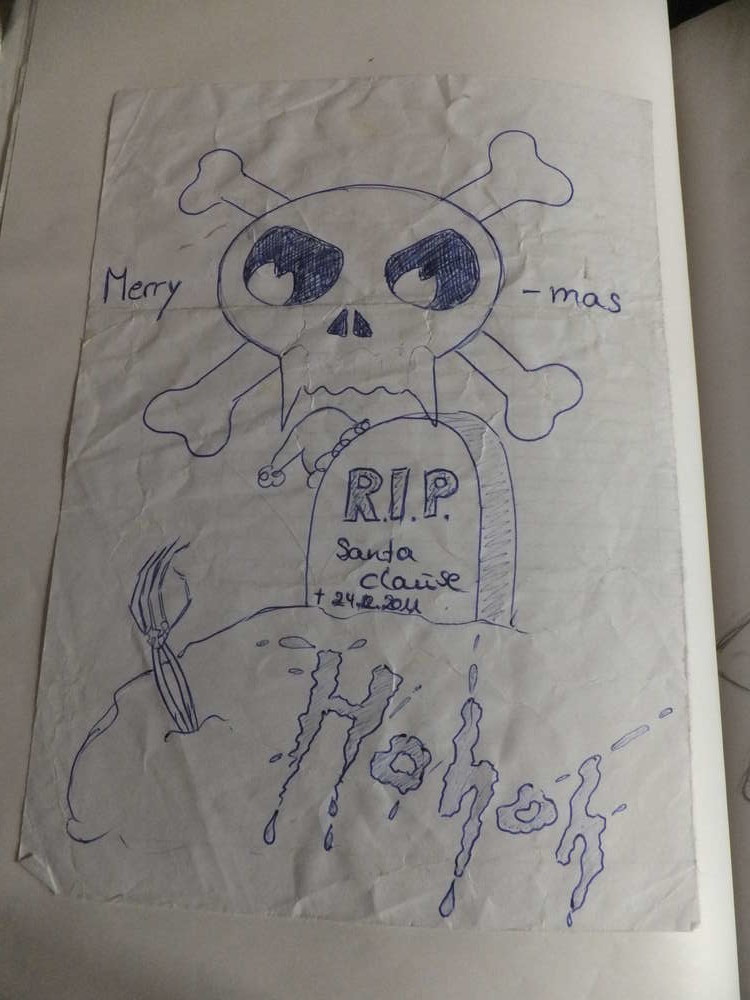 Merry -mas
R.I.P.
Santa
clause
+ 24.12.2011
Hohoh